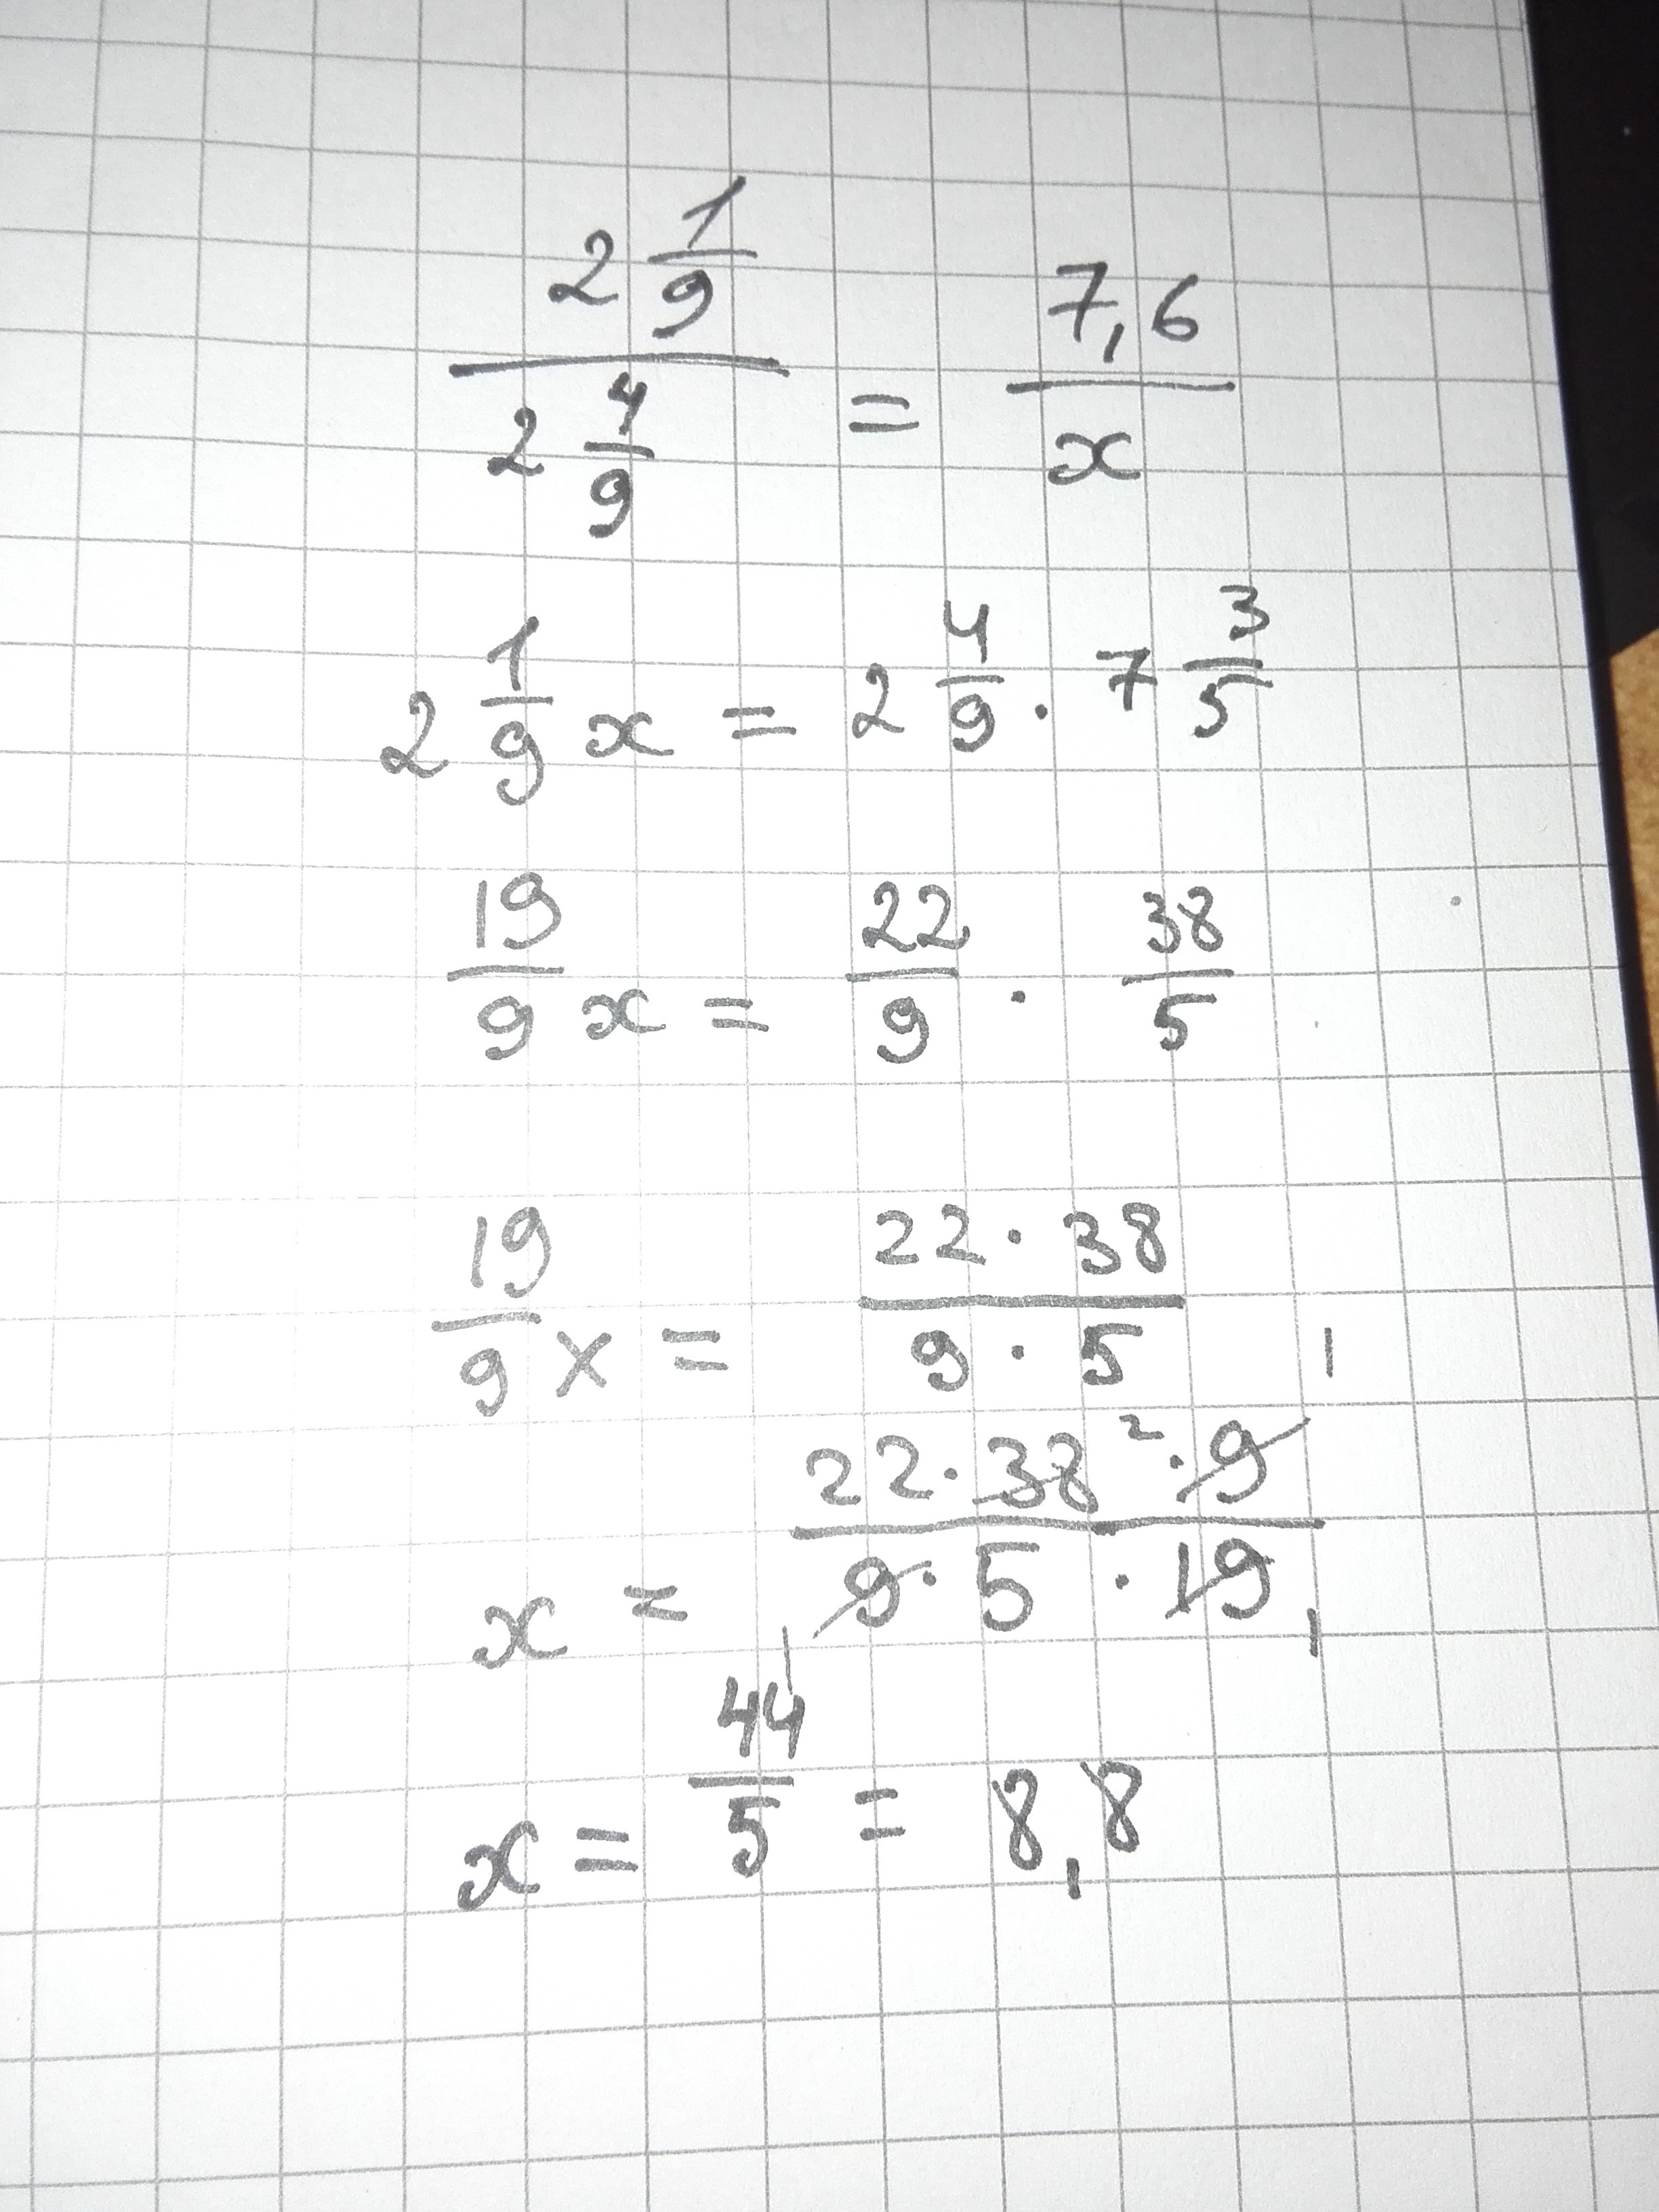 2 1/9 / 2 4/9 = 7,6 / x
2 1/9 x = 2 4/9 · 7 3/5
19/9 x = 22/9 · 38/5
19/9 x = 22 · 38 / 9 · 5
x = 22 · 38 2 · 9 1 / 1 9 · 5 · 19 1
x = 44/5 = 8,8